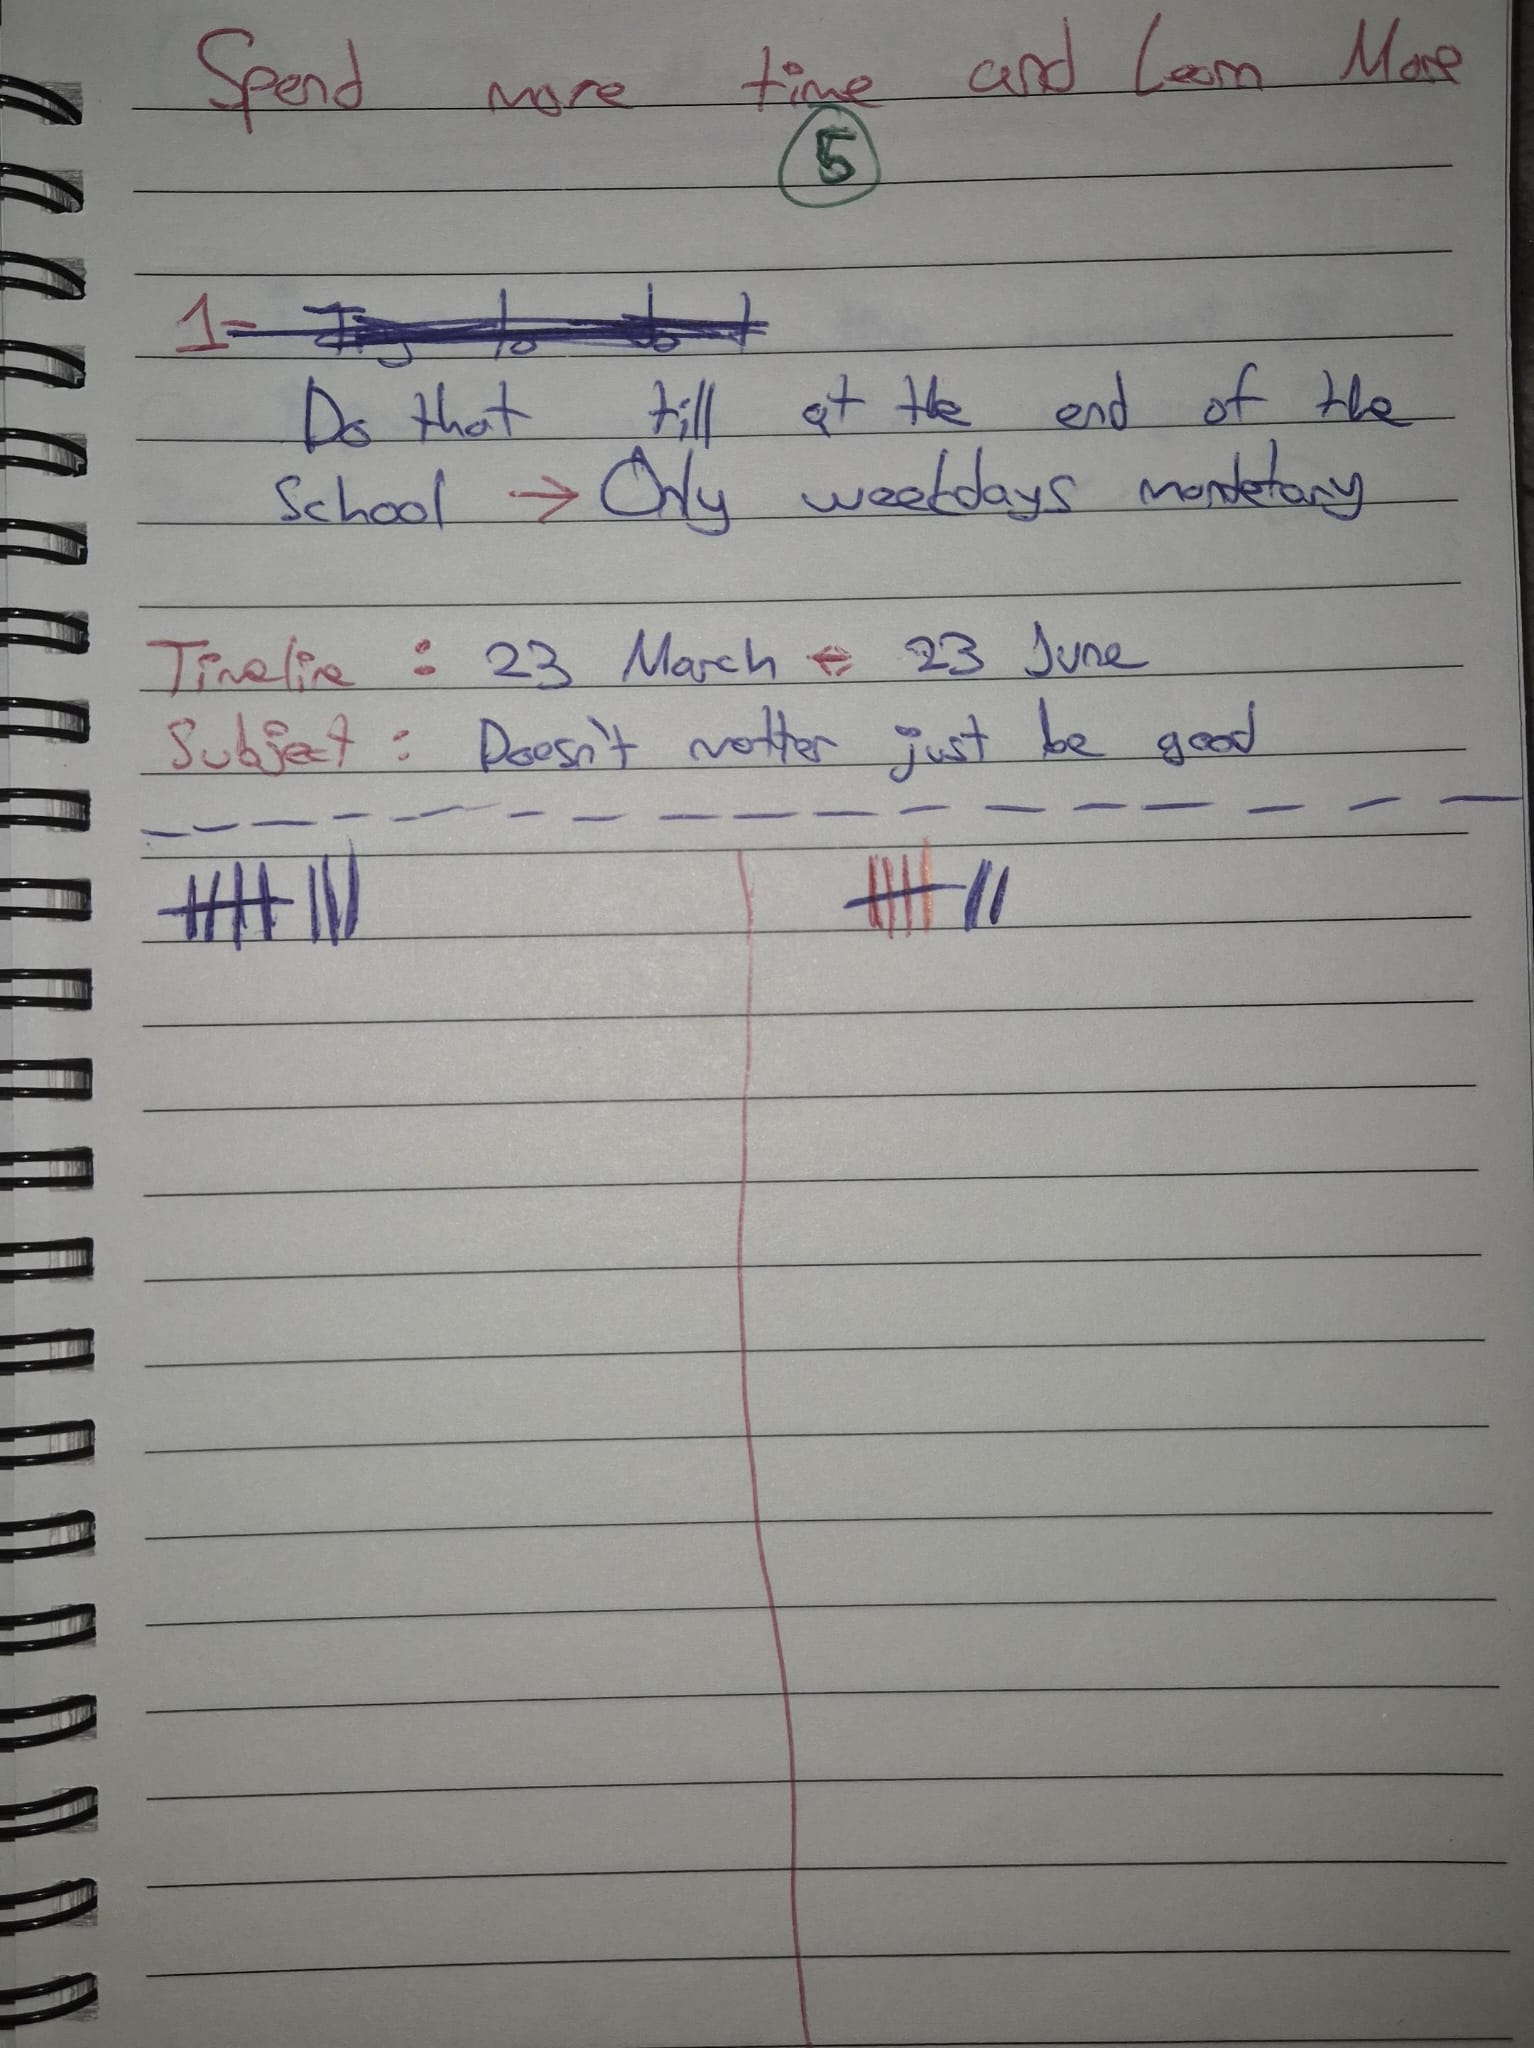 Spend more time and Learn More
5
1-
Do that till at the end of the
School → Only weekdays mandetary
Timeline : 23 March ⇔ 23 June
Subject : Doesn't matter just be good